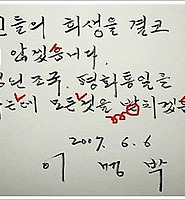 들의 희생을 결코
않겠읍니다.
조국. 평화통일을
는데 모든것을 받치겠
2007. 6. 6
이 명 박